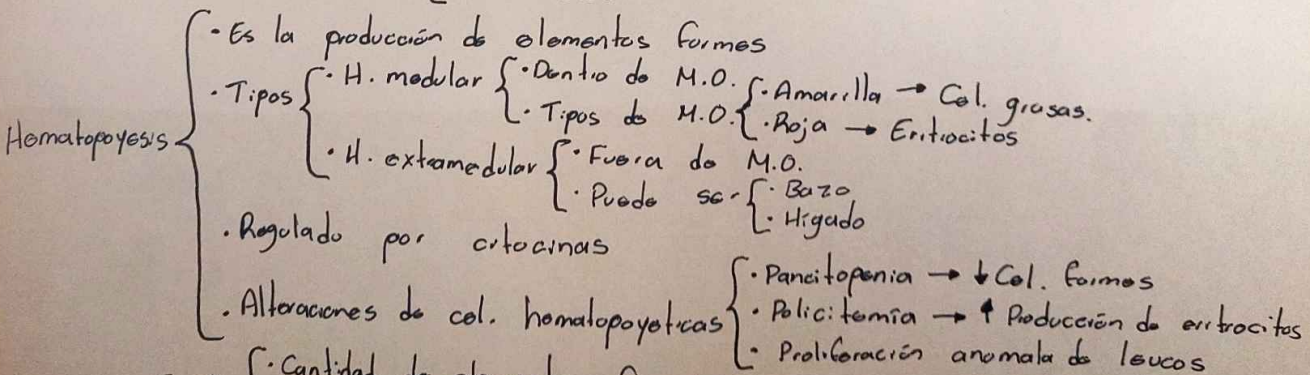 Hematopoyesis
· Es la producción de elementos formes
· Tipos
· H. medular
· Dentro de M.O.
· Tipos de M.O.
· Amarilla → Cel. grasas.
· Roja → Eritrocitos
· H. extramedular
· Fuera de M.O.
· Puede ser
· Bazo
· Higado
· Regulado por citocinas
· Alteraciones de cel. hematopoyeticas
· Pancitopenia → ↓ Cel. formes
· Policitemia → ↑ Producción de eritrocitos
· Proliferación anomala de leucos
· Cantidad